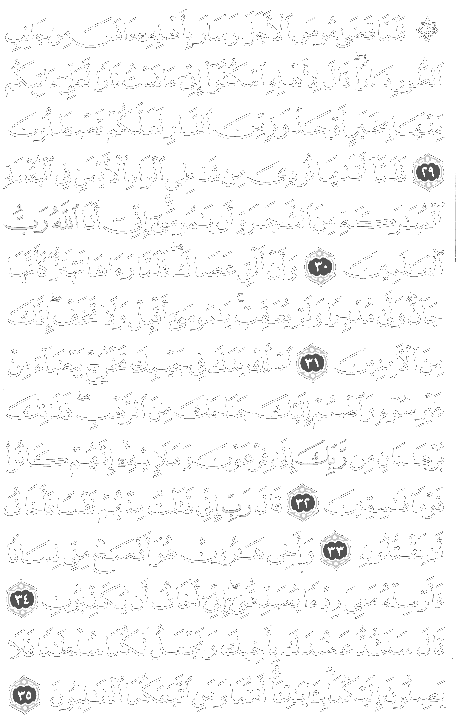 ۞ فَلَمَّا قَضَىٰ مُوسَى ٱلْأَجَلَ وَسَارَ بِأَهْلِهِۦٓ ءَانَسَ مِن جَانِبِ
ٱلطُّورِ نَارًا قَالَ لِأَهْلِهِ ٱمْكُثُوٓا۟ إِنِّىٓ ءَانَسْتُ نَارًا لَّعَلِّىٓ ءَاتِيكُم
مِّنْهَا بِخَبَرٍ أَوْ جَذْوَةٍ مِّنَ ٱلنَّارِ لَعَلَّكُمْ تَصْطَلُونَ
٢٩ فَلَمَّآ أَتَىٰهَا نُودِىَ مِن شَٰطِئِ ٱلْوَادِ ٱلْأَيْمَنِ فِى ٱلْبُقْعَةِ
ٱلْمُبَٰرَكَةِ مِنَ ٱلشَّجَرَةِ أَن يَٰمُوسَىٰٓ إِنِّىٓ أَنَا ٱللَّهُ رَبُّ
ٱلْعَٰلَمِينَ ٣٠ وَأَنْ أَلْقِ عَصَاكَ فَلَمَّا رَءَاهَا تَهْتَزُّ كَأَنَّهَا
جَآنٌّ وَلَّىٰ مُدْبِرًا وَلَمْ يُعَقِّبْ يَٰمُوسَىٰٓ أَقْبِلْ وَلَا تَخَفْ إِنَّكَ
مِنَ ٱلْءَامِنِينَ ٣١ ٱسْلُكْ يَدَكَ فِى جَيْبِكَ تَخْرُجْ بَيْضَآءَ مِنْ
غَيْرِ سُوٓءٍ وَٱضْمُمْ إِلَيْكَ جَنَاحَكَ مِنَ ٱلرَّهْبِ فَذَٰنِكَ
بُرْهَٰنَانِ مِن رَّبِّكَ إِلَىٰ فِرْعَوْنَ وَمَلَإِي۟هِۦٓ إِنَّهُمْ كَانُوا۟
قَوْمًا فَٰسِقِينَ ٣٢ قَالَ رَبِّ إِنِّى قَتَلْتُ مِنْهُمْ نَفْسًا فَأَخَافُ
أَن يَقْتُلُونِ ٣٣ وَأَخِى هَٰرُونُ هُوَ أَفْصَحُ مِنِّى لِسَانًا
فَأَرْسِلْهُ مَعِىَ رِدْءًا يُصَدِّقُنِىٓ إِنِّىٓ أَخَافُ أَن يُكَذِّبُونِ ٣٤
قَالَ سَنَشُدُّ عَضُدَكَ بِأَخِيكَ وَنَجْعَلُ لَكُمَا سُلْطَٰنًا فَلَا
يَصِلُونَ إِلَيْكُمَا بِـَٔايَٰتِنَآ أَنتُمَا وَمَنِ ٱتَّبَعَكُمَا ٱلْغَٰلِبُونَ ٣٥